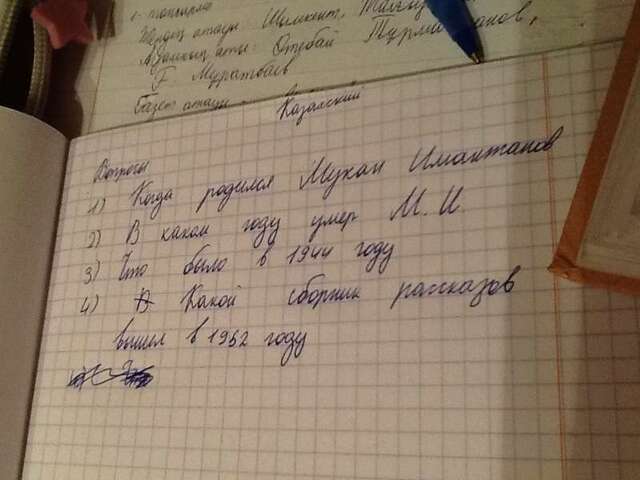 1- тапсырма
Жердің атауы: Шымкент,
Адамның аты: Отебай Турманжанов,
Ғ. Мұратбаев
Газет атауы -
Казахский
Вопросы
1) Когда родился Мукан Иманжанов
2) В каком году умер М. И.
3) Что было в 1944 году
4) В Какой сборник рассказов
вышел в 1952 году